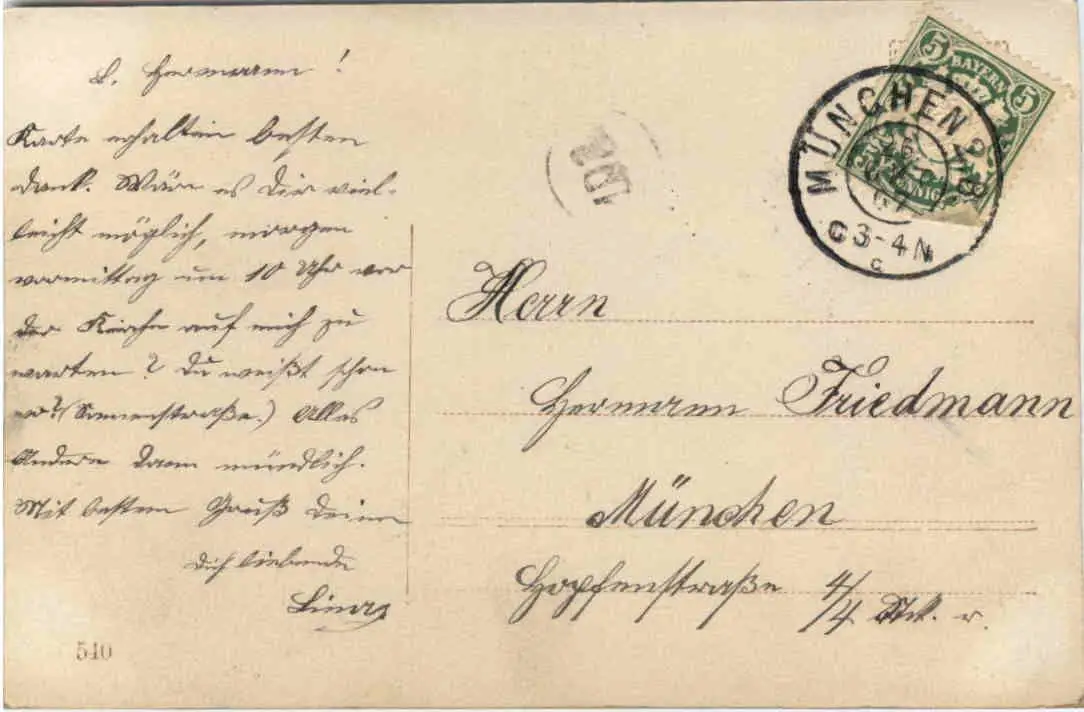 L. Hermann!
Karte erhalten besten
Dank. Wäre es Dir viel-
leicht möglich, morgen
vormittag um 10 Uhr vor
der Kirche auf mich zu
warten? Du weißt schon
wo? (Sonnenstraße.) Alles
Andere dann mündlich.
Mit besten Gruß Deine
Dich liebende
Lina
540
5 BAYERN 5
PFENNIG
MÜNCHEN 2 B.
3-4 N
C
102
Herrn
Hermann Friedmann
München
Hopfenstraße 4/4 Stk. r.